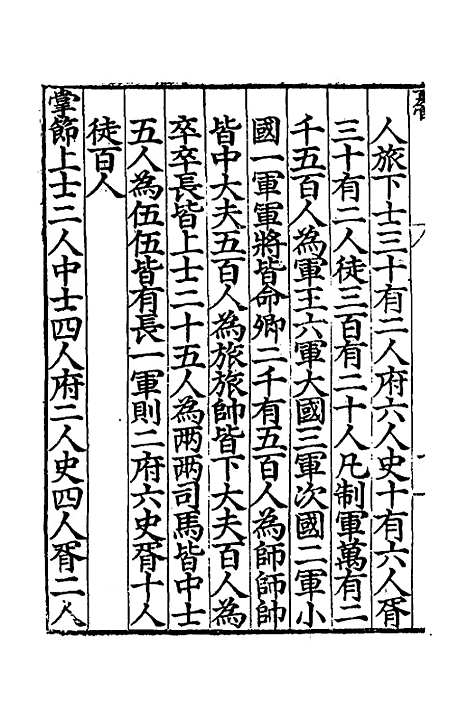 人旅下士三十有二人府六人史十有六人胥
三十有二人徒三百有二十人凡制軍萬有二
千五百人為軍王六軍大國三軍次國二軍小
國一軍軍將皆命卿二千有五百人為師師帥
皆中大夫五百人為旅旅師皆下大夫百人為
卒卒長皆上士二十五人為兩兩司馬皆中士
五人為伍伍皆有長一軍則二府六史胥十人
徒百人
掌節上士二人中士四人府二人史四人胥二人